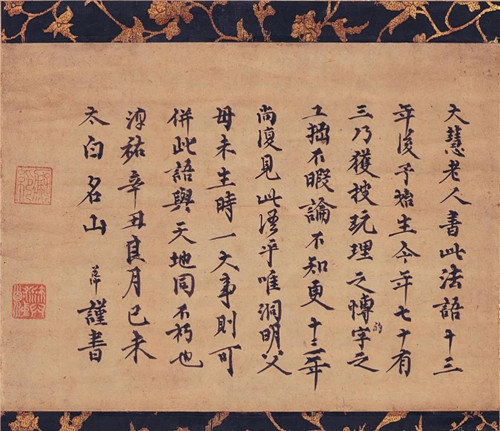 大慧老人書此法語十三
年後予始生今年七十有
三乃獲披玩理之的字之
工拙不暇論不知更十三年
尚復見此語乎唯洞明父
母未生時一大事則可
併此語與天地同不朽也
淳祐辛丑良月己未
太白名山 道冲 謹書